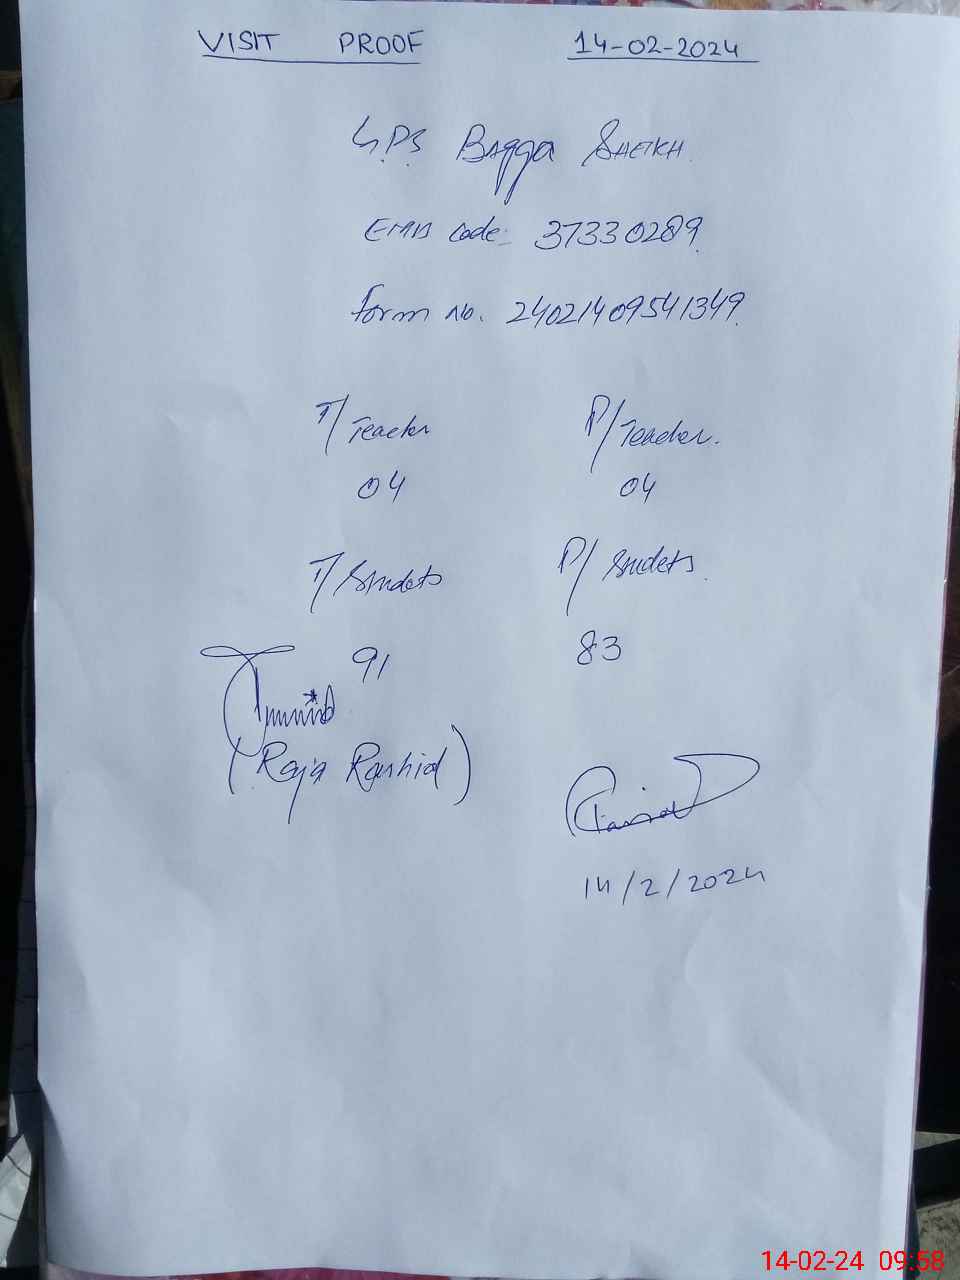 VISIT PROOF 14-02-2024
G.P.S Bagga SHEIKH.
EMIS Code: 37330289.
Form No. 24021409541349.
T/Teacher P/Teacher.
04 04
T/Students P/Students.
91 83
(Raja Rashid)
14/2/2024
14-02-24 09:58